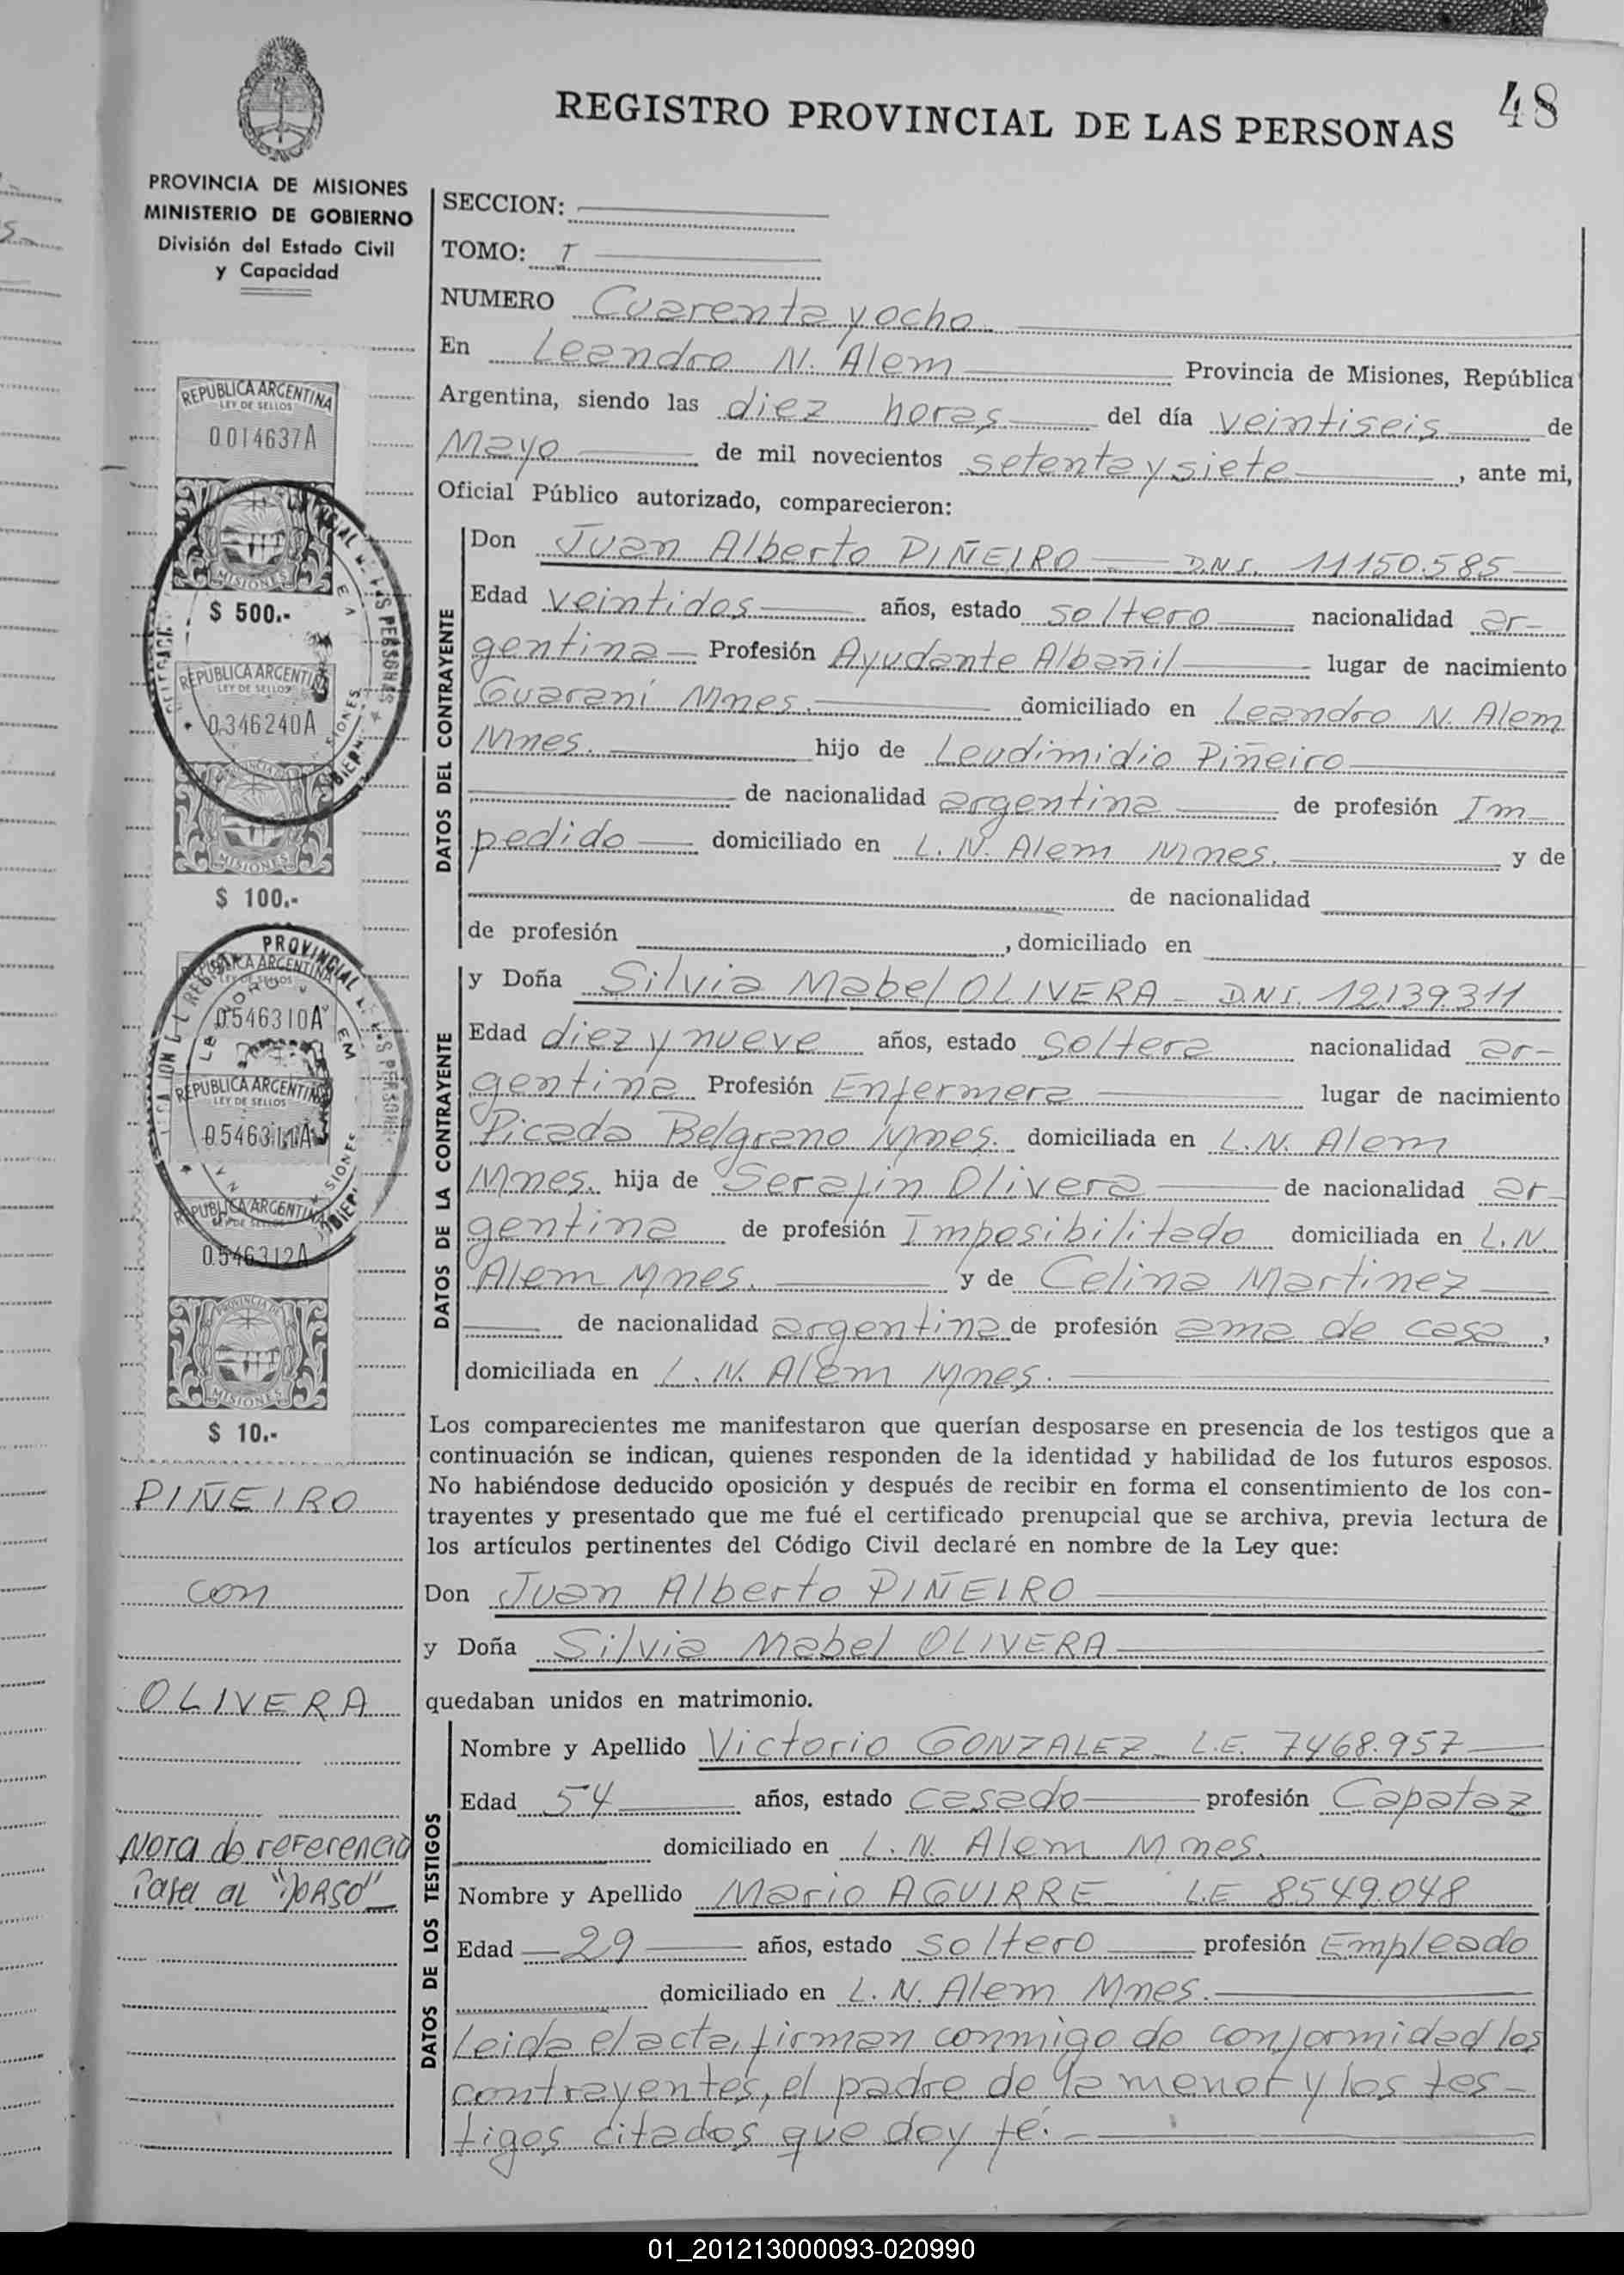 48
REGISTRO PROVINCIAL DE LAS PERSONAS
PROVINCIA DE MISIONES
MINISTERIO DE GOBIERNO
División del Estado Civil
y Capacidad
SECCION:
TOMO: I
NUMERO Cuarenta y ocho
En Leandro N. Alem Provincia de Misiones, República
Argentina, siendo las diez horas del día veintiseis de
Mayo de mil novecientos setenta y siete, ante mi,
Oficial Público autorizado, comparecieron:
DATOS DEL CONTRAYENTE
Don Juan Alberto PIÑEIRO D.N.I. 11150.585
Edad veintidos años, estado soltero nacionalidad ar-
gentina Profesión Ayudante Albañil lugar de nacimiento
Guaraní Mnes. domiciliado en Leandro N. Alem
Mnes. hijo de Leudimidio Piñeiro
de nacionalidad argentina de profesión Im
pedido domiciliado en L. N. Alem Mnes. y de
de nacionalidad
de profesión , domiciliado en
DATOS DE LA CONTRAYENTE
y Doña Silvia Mabel OLIVERA - D.N.I. 12.139.311
Edad diez y nueve años, estado soltera nacionalidad ar-
gentina Profesión Enfermera lugar de nacimiento
Picada Belgrano Mnes. domiciliada en L.N. Alem
Mnes. hija de Serafin Olivera de nacionalidad ar
gentina de profesión Imposibilitado domiciliada en L.N.
Alem Mnes. y de Celina Martinez
de nacionalidad argentina de profesión ama de casa,
domiciliada en L. N. Alem Mnes.
Los comparecientes me manifestaron que querían desposarse en presencia de los testigos que a
continuación se indican, quienes responden de la identidad y habilidad de los futuros esposos.
No habiéndose deducido oposición y después de recibir en forma el consentimiento de los con-
trayentes y presentado que me fué el certificado prenupcial que se archiva, previa lectura de
los artículos pertinentes del Código Civil declaré en nombre de la Ley que:
Don Juan Alberto PIÑEIRO
y Doña Silvia Mabel OLIVERA
quedaban unidos en matrimonio.
DATOS DE LOS TESTIGOS
Nombre y Apellido Victorio GONZALEZ L.E. 7468.957
Edad 54 años, estado casado profesión Capataz
domiciliado en L. N. Alem Mnes.
Nombre y Apellido Mario AGUIRRE L.E 8549.048
Edad 29 años, estado soltero profesión Empleado
domiciliado en L. N. Alem Mnes.
Leida el acta, firman conmigo de conformidad los
contrayentes, el padre de la menor y los tes-
tigos citados que doy fé.
REPUBLICA ARGENTINA
LEY DE SELLOS
0014637A
MISIONES
$ 500.-
REPUBLICA ARGENTINA
LEY DE SELLOS
0346240A
MISIONES
$ 100.-
0546310A
REPUBLICA ARGENTINA
LEY DE SELLOS
0546311A
REPUBLICA ARGENTINA
LEY DE SELLOS
0546312A
PROVINCIA DE
MISIONES
$ 10.-
PIÑEIRO
con
OLIVERA
Nota de referencia
Pasa al "DORSO"
01_201213000093-020990